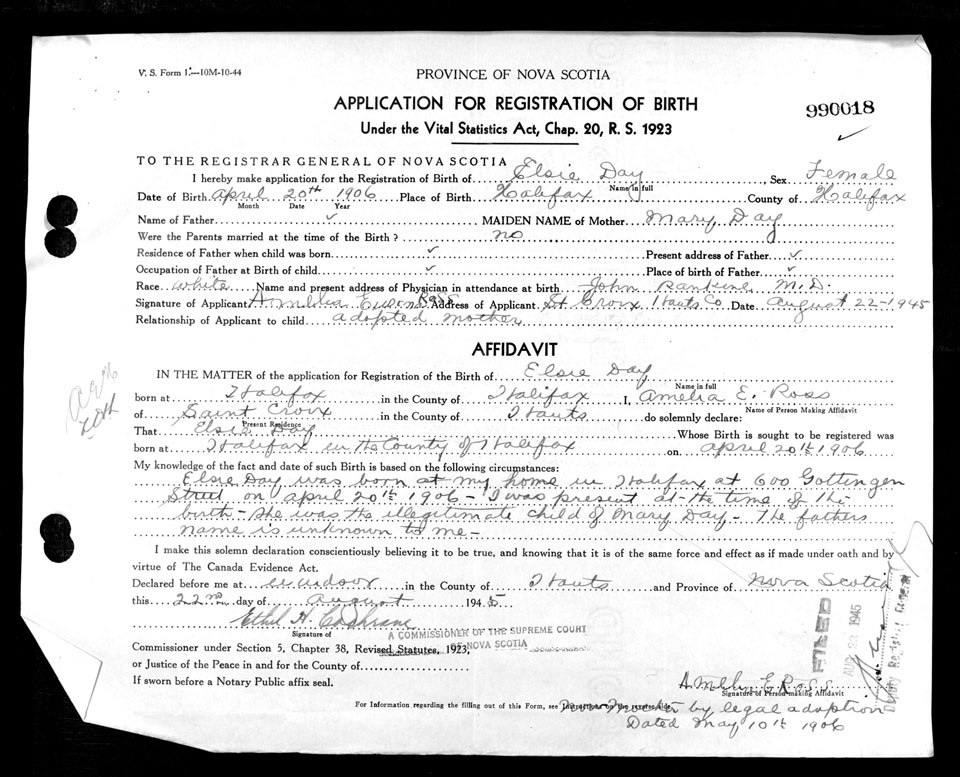 V. S. Form 1.—10M-10-44
PROVINCE OF NOVA SCOTIA
APPLICATION FOR REGISTRATION OF BIRTH
990018
Under the Vital Statistics Act, Chap. 20, R. S. 1923
TO THE REGISTRAR GENERAL OF NOVA SCOTIA
I hereby make application for the Registration of Birth of Elsie Day, Sex Female
Name in full
Date of Birth April 20th 1906 Place of Birth Halifax County of Halifax
Month Date Year
Name of Father ✓ MAIDEN NAME of Mother Mary Day
Were the Parents married at the time of the Birth? no
Residence of Father when child was born ✓ Present address of Father ✓
Occupation of Father at Birth of child ✓ Place of birth of Father ✓
Race white Name and present address of Physician in attendance at birth John Rankine M.D.
Signature of Applicant Ross Address of Applicant St Croix Hants Co Date August 22-1945
Relationship of Applicant to child adopted mother
AFFIDAVIT
IN THE MATTER of the application for Registration of the Birth of Elsie Day
Name in full
born at Halifax in the County of Halifax I, Amelia E. Ross
Name of Person Making Affidavit
of Saint Croix in the County of Hants do solemnly declare:
Present Residence
That Elsie Day Whose Birth is sought to be registered was
born at Halifax in the County of Halifax on April 20th 1906
My knowledge of the fact and date of such Birth is based on the following circumstances:
Elsie Day was born at my home in Halifax at 600 Gottingen
Street on April 20th 1906 - I was present at the time of the
birth - She was the illegitimate child of Mary Day - The fathers
name is unknown to me -
I make this solemn declaration conscientiously believing it to be true, and knowing that it is of the same force and effect as if made under oath and by
virtue of The Canada Evidence Act.
Declared before me at Windsor in the County of Hants and Province of Nova Scotia
this 22nd day of August 1945
Ethel H. Cochrane
Signature of
A COMMISSIONER OF THE SUPREME COURT
OF NOVA SCOTIA
Commissioner under Section 5, Chapter 38, Revised Statutes, 1923,
or Justice of the Peace in and for the County of
If sworn before a Notary Public affix seal.
FILED
AUG 23 1945
E Ross
Signature of Person making Affidavit
For Information regarding the filling out of this Form, see Instructions on the reverse side.
by legal adoption
Dated May 10th 1906